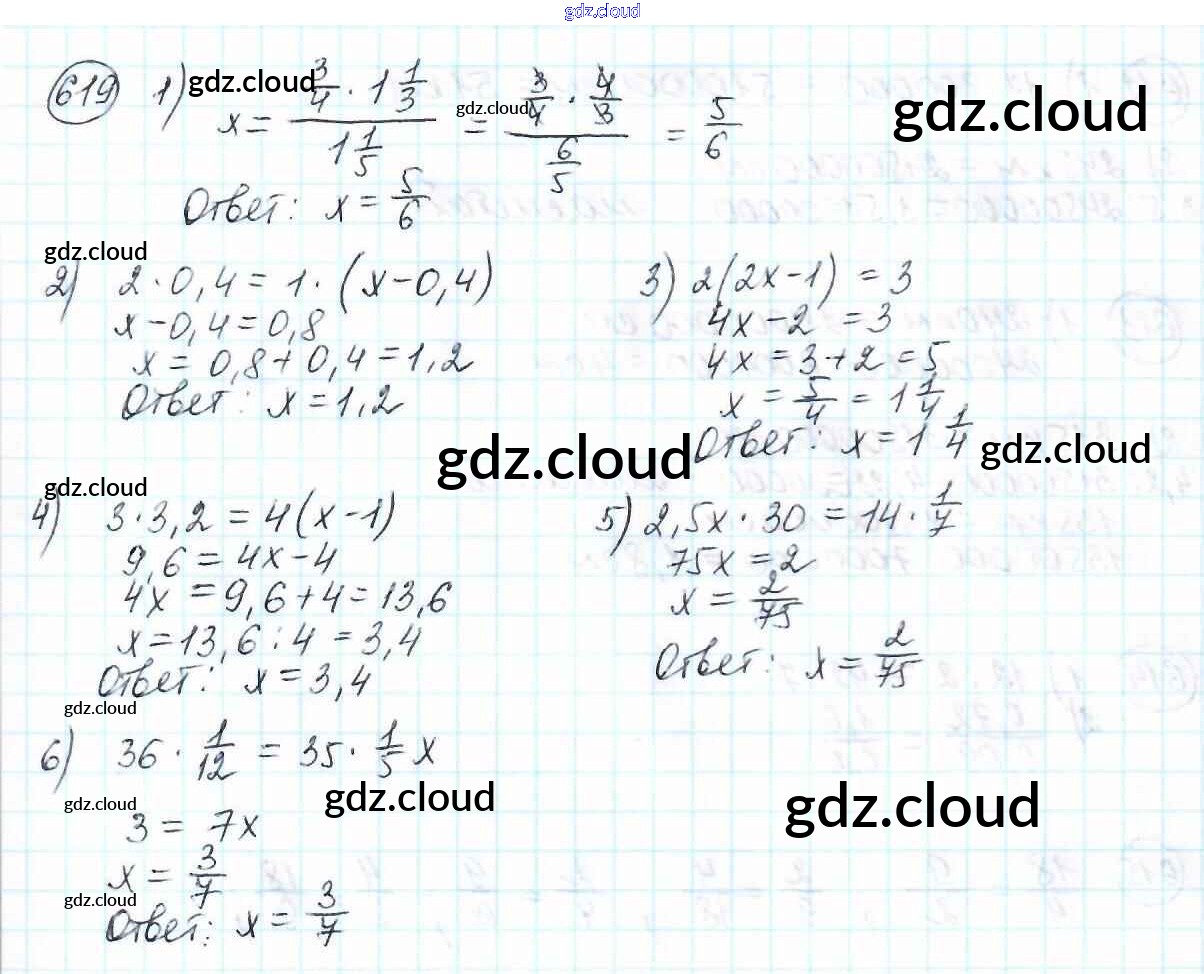 gdz.cloud
619 1) x = (3/4 · 1 1/3)/(1 1/5) = (3/4 · 4/3)/(6/5) = 5/6
gdz.cloud gdz.cloud gdz.cloud
Ответ: x = 5/6
gdz.cloud
2) 2 · 0,4 = 1 · (x − 0,4)
x − 0,4 = 0,8
x = 0,8 + 0,4 = 1,2
Ответ: x = 1,2
3) 2(2x − 1) = 3
4x − 2 = 3
4x = 3 + 2 = 5
x = 5/4 = 1 1/4
Ответ: x = 1 1/4
gdz.cloud gdz.cloud
gdz.cloud
4) 3 · 3,2 = 4(x − 1)
9,6 = 4x − 4
4x = 9,6 + 4 = 13,6
x = 13,6 : 4 = 3,4
Ответ: x = 3,4
5) 2,5x · 30 = 14 · 1/7
75x = 2
x = 2/75
Ответ: x = 2/75
gdz.cloud
6) 36 · 1/12 = 35 · 1/5 x
gdz.cloud gdz.cloud gdz.cloud
3 = 7x
x = 3/7
gdz.cloud
Ответ: x = 3/7